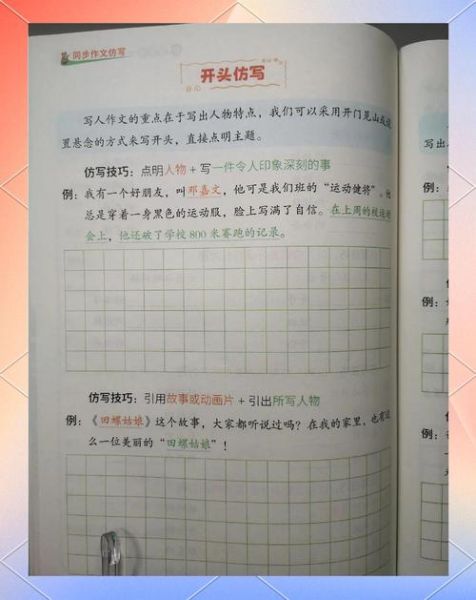 同步作文仿写
开头仿写
写人作文的重点在于写出人物特点，我们可以采用开门见山或设
置悬念的方式来写开头，直接点明主题。
仿写技巧：点明人物 + 写一件令人印象深刻的事
例：我有一个好朋友，叫邓嘉文，他可是我们班的“运动健将”。他
总是穿着一身黑色的运动服，脸上写满了自信。在上周的校运动
会上，他还破了学校 800 米赛跑的记录。
仿写技巧：引用故事或动画片 + 引出所写人物
例：《田螺姑娘》这个故事，大家都听说过吗？在我的家里，也有这
么一位美丽的“田螺姑娘”！
写出
例：
例：